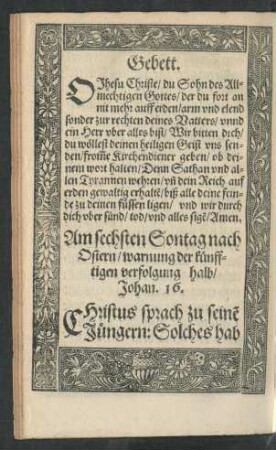 Gebett.
O Jhesu Christe/ du Sohn des All-
mechtigen Gottes/ der du fort an
nit mehr auff erden/ arm vnd elend
sonder zur rechten deines Vatters/ vnnd
ein Herr vber alles bist/ Wir bitten dich/
du wöllest deinen heiligen Geist vns sen-
den/ from̃e Kirchendiener geben/ ob dei-
nem wort halten/ Denn Sathan vnd al-
len Tyrannen wehren/ vñ dein Reich auff
erden gewaltig erhaltẽ/ biß alle deine fein-
de zu deinen füssen ligen/ vnd wir durch
dich vber sünd/ tod/ vnd alles sigẽ/ Amen.
Am sechsten Sontag nach
Ostern/ warnung der künff-
tigen verfolgung halb/
Johan. 16.
CHristus sprach zu seinẽ
Jüngern: Solches hab